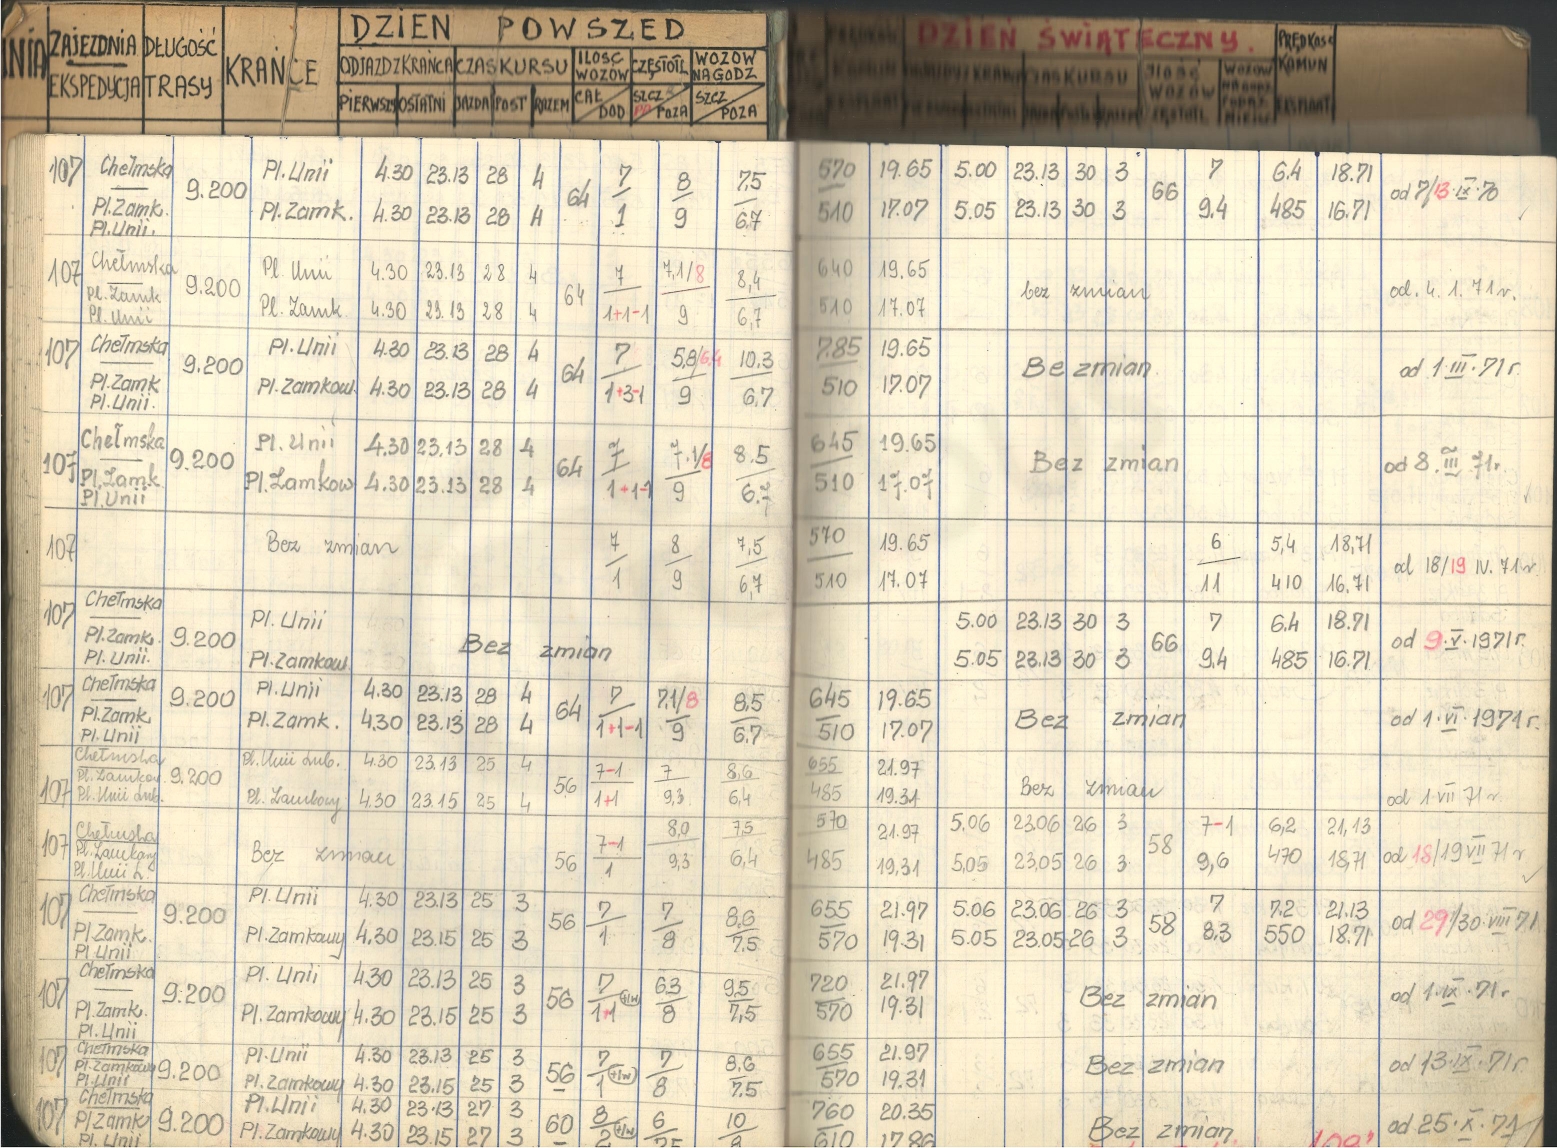 DZIEŃ POWSZED
DZIEŃ ŚWIĄTECZNY.
ZAJEZDNIA DŁUGOŚĆ KRAŃCE ODJAZD Z KRAŃCA CZAS KURSU ILOŚĆ CZĘSTOTL WOZÓW PRĘDKOŚĆ
EKSPEDYCJA TRASY WOZÓW NA GODZ KOMUN
PIERWSZY OSTATNI JAZDA POST RAZEM CAŁ DOD SZCZ POZA SZCZ POZA EKSPLOAT
107 Chełmska 9.200 Pl. Unii 4.30 23.13 28 4 64 7 8 7,5 570 19.65 5.00 23.13 30 3 66 7 6.4 18.71 od 7/13·IX·70
Pl. Zamk. Pl. Zamk. 4.30 23.13 28 4 1 9 6,7 510 17.07 5.05 23.13 30 3 9,4 485 16.71
Pl. Unii.
107 Chełmska 9.200 Pl. Unii 4.30 23.13 28 4 64 7 7,1/8 8,4 640 19.65 bez zmian od. 4. 1. 71 r.
Pl. Zamk Pl. Zamk. 4.30 23.13 28 4 1+1-1 9 6,7 510 17.07
Pl. Unii
107 Chełmska 9.200 Pl. Unii 4.30 23.13 28 4 64 7 5,8/6.4 10.3 785 19.65 Bezmian. od 1·III·71 r.
Pl. Zamk Pl. Zamkow. 4.30 23.13 28 4 1+3-1 9 6,7 510 17.07
Pl. Unii.
107 Chełmska 9.200 Pl. Unii 4.30 23.13 28 4 64 7 7.1/8 8.5 645 19.65 Bez zmian od 8. III 71r.
Pl. Zamk Pl. Zamkow 4.30 23.13 28 4 1+1-1 9 6.7 510 17.07
Pl. Unii
107 Bez zmian 7 8 7,5 570 19.65 6 5,4 18,71 od 18/19 IV. 71 r
1 9 6,7 510 17.07 11 410 16,71
107 Chełmska 9.200 Pl. Unii Bez zmian 5.00 23.13 30 3 66 7 6.4 18.71 od 9·V·1971 r.
Pl. Zamk. Pl. Zamkow. 5.05 23.13 30 3 9,4 485 16.71
Pl. Unii.
107 Chełmska 9.200 Pl. Unii 4.30 23.13 28 4 64 7 7,1/8 8,5 645 19.65 Bez zmian od 1·VI·1971 r.
Pl. Zamk. Pl. Zamk. 4.30 23.13 28 4 1+1-1 9 6,7 510 17.07
Pl. Unii
107 Chełmska 9.200 Pl. Unii Lub. 4.30 23.13 25 4 56 7-1 7 8,6 655 21.97 Bez zmian od 1 VII 71 r
Pl. Zamkow Pl. Zamkowy 4.30 23.15 25 4 1+1 9,3 6,4 485 19.31
Pl. Unii Lub.
107 Chełmska Bez zmian 56 7-1 8,0 7,5 570 21.97 5.06 23.06 26 3 58 7-1 6,2 21,13 od 18/19 VII 71 r
Pl. Zamkowy 1 9,3 6,4 485 19,31 5,05 23,05 26 3 9,6 470 18,71
Pl. Unii L.
107 Chełmska 9.200 Pl. Unii 4.30 23.13 25 3 56 7 7 8,6 655 21.97 5.06 23.06 26 3 58 7 7,2 21.13 od 29/30·VIII·71
Pl. Zamk. Pl. Zamkowy 4.30 23.15 25 3 1 8 7,5 570 19.31 5.05 23.05 26 3 8,3 550 18.71
Pl. Unii
107 Chełmska 9.200 Pl. Unii 4.30 23.13 25 3 56 7 6,3 9,5 720 21.97 Bez zmian od 1·IX·71 r.
Pl. Zamk. Pl. Zamkowy 4.30 23.15 25 3 1+1 (+1w) 8 7,5 570 19.31
Pl. Unii
107 Chełmska 9.200 Pl. Unii 4.30 23.13 25 3 56 7 7 8,6 655 21.97 Bez zmian od 13·IX·71 r.
Pl. Zamkowy Pl. Zamkowy 4.30 23.15 25 3 1 (+1w) 8 7,5 570 19.31
Pl. Unii
107 Chełmska 9.200 Pl. Unii 4.30 23.13 27 3 60 8 6 10 760 20.35 Bez zmian od 25·X·71
Pl. Zamk Pl. Zamkowy 4.30 23.15 27 3 2 (+1w) 7,5 8 610 17.86
Pl. Unii